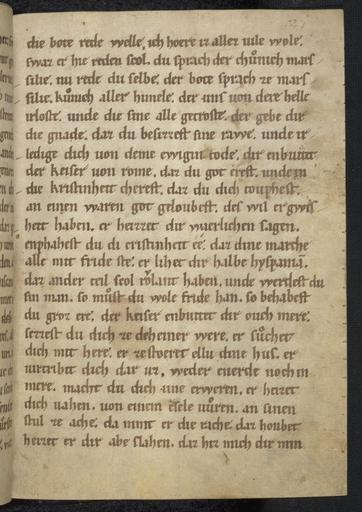 die bote rede welle. ich hoere iz aller uile wole.
swaz er hie reden scol. du sprach der chůnich mars
silie. nu rede du selbe. der bote sprach ze mars
silie. kůnich aller himele. der uns uon dere helle
irloste. unde die sine alle getroste. der gebe dir
die gnade. daz du bezzerest sine rawe. unde ir
ledige dich uon deme ewigin tode. dir enbiutit
der keiser uon rome. daz du got erest. unde in
die kristinheit cherest. daz du dich touphest.
an einen waren got geloubest. des wil er gwis
heit haben. er heizzet dir waerlichen sagen.
enphahest du di cristinheit ee. daz dine marche
alle mit fride ste. er lihet dir halbe hyspaniā.
daz ander teil scol rolant haben. unde werdest du
sin man. so můst du wole fride han. so behabest
du groz ere. der keiser enbiutet dir ouch mere.
sezzest du dich ze deheiner were. er sůchet
dich mit here. er zestoeret ellu dine hus. er
uirtribit dich dar uz. weder enerde noch in
mere. macht du dich ime erweren. er heizet
dich uahen. uon einem esele uůren. an sinen
stul ze ache. da nimt er die rache. daz houbet
heizzet er dir abe slahen. daz hiz mich dir min